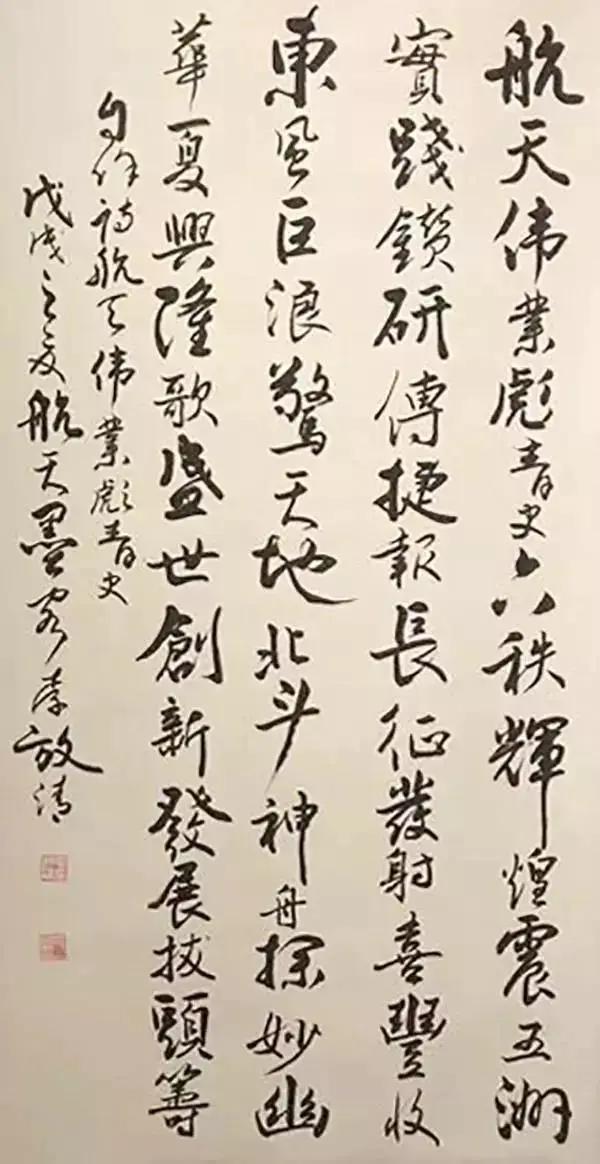 航天伟業彪青史六秩輝煌震五湖
實踐鑽研傳捷報長征發射喜豐收
東風巨浪驚天地北斗神舟探妙幽
華夏興隆歌盛世創新發展拔頭籌
自作詩航天伟業彪青史
戊戌之夏航天墨客李放清